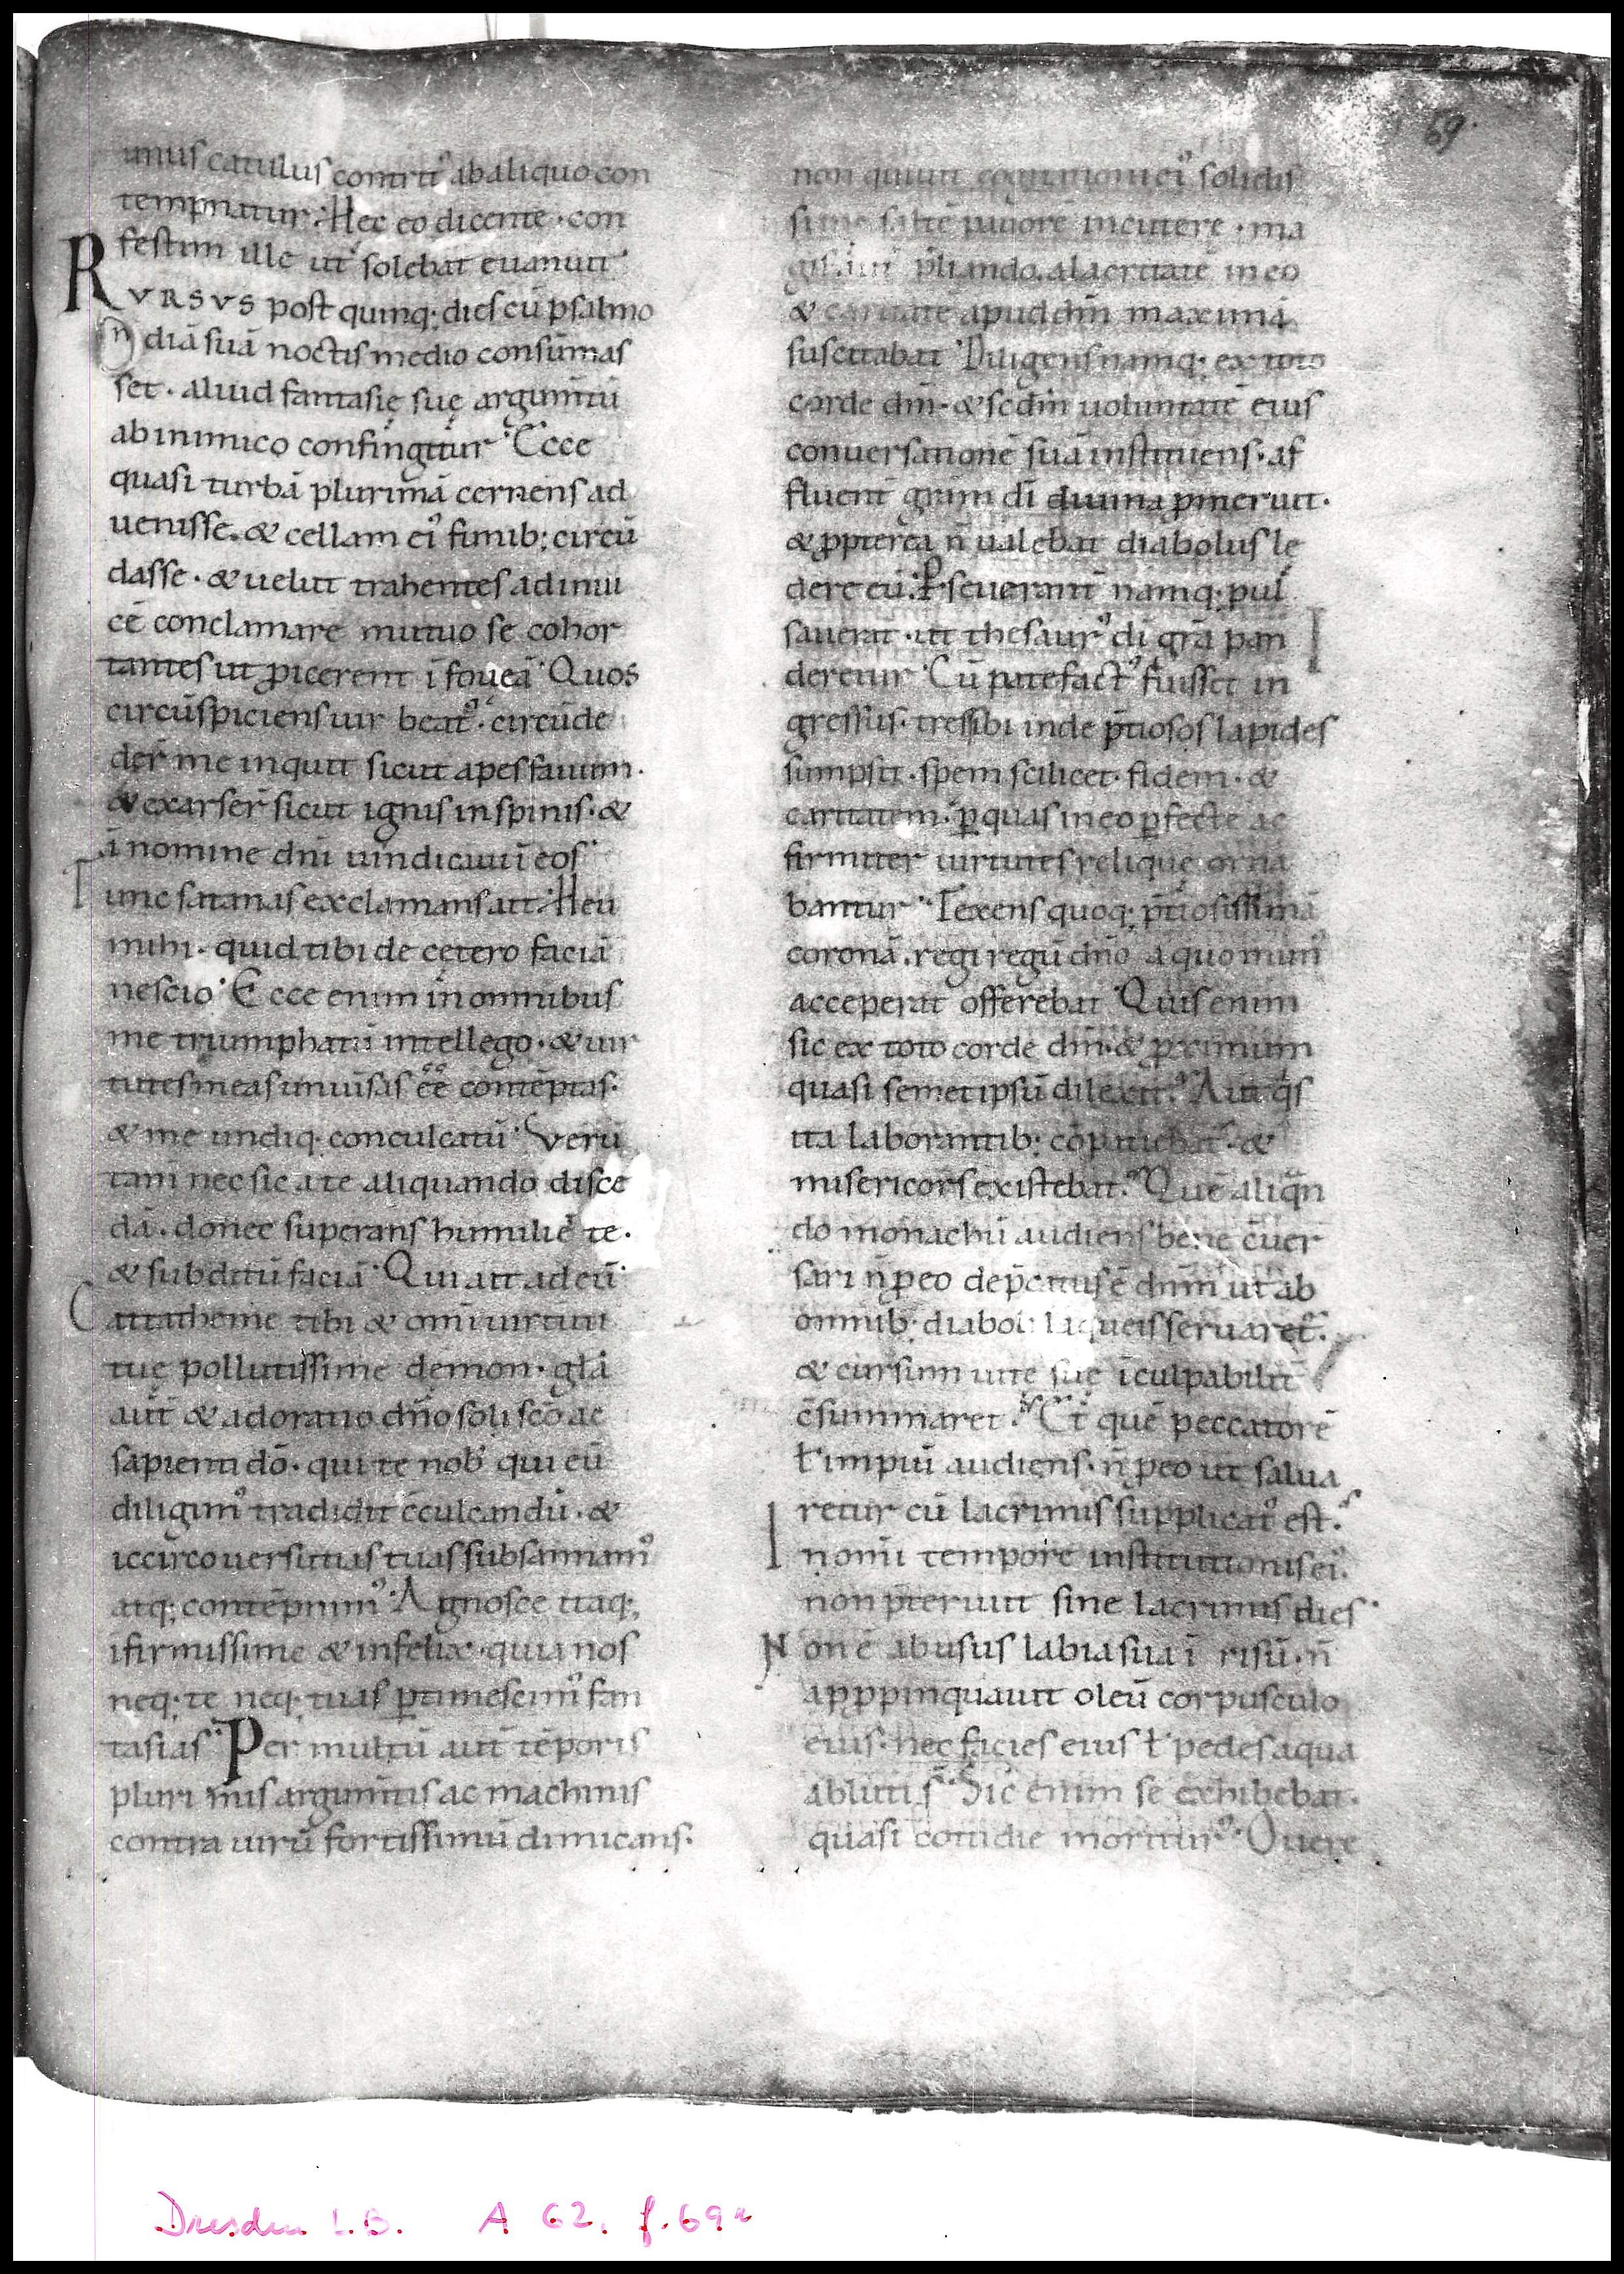 69.
unus catulus contritꝰ ab aliquo con
tempnatur. Hec eo dicente. con
festim ille ut solebat euanuit
RVRSVS post quinq; dies cū psalmo
diā suā noctis medio consūmas
set. aliud fantasię suę argumtū
ab inimico confingitur. Ecce
quasi turbā plurimā cernens ad
uenisse. & cellam eiꝰ funib; circū
dasse. & uelut trahentes adinui
cē conclamare mutuo se cohor
tantes ut ꝓicerent ī foueā. Quos
circūspiciens uir beatꝰ. circūde
der̄ me inquit sicut apes fauum.
& exarser̄ sicut ignis in spinis. &
ī nomine dnī uindicaui ī eos.
Tunc satanas exclamans ait. Heu
mihi. quid tibi de cętero faciā
nescio. Ecce enim in omnibus
me triumphatū intellego. & uir
tutes meas inuisas ēē contēptas.
& me undiq; conculcatū. Verū
tam̄ nec sic a te aliquando disce
dā. donec superans humiliē te.
& subditū faciā. Qui ait ad eū
Anatheme tibi & omī uirtuti
tuę pollutissime dęmon. glā
aut̄ & adoratio dn̄o soli scō ac
sapienti dō. qui te nob qui eū
diligimꝰ tradidit c̄culcandū. &
iccirco uersutias tuas subsannamꝰ
atq; contēpnimꝰ. Agnosce itaq;
ifirmissime & infelix. quia nos
neq; te neq; tuas ꝑtimescimꝰ fan
tasias. Per multū aut̄ tēporis
plurimis argumtis ac machinis
contra uirū fortissimū dimicans.
non quiuit eiꝰ solidis
sime saltē pauorē incutere. ma
gis pliando. alacritatē in eo
& caritatē apud dm̄ maximā
suscitabat. Diligens namq; ex toto
corde dm̄. & scdm̄ uoluntatē eius
conuersationē suā instituens. af
fluent̄ grām dī diuina ꝓmeruit.
& ꝓpterea n̄ ualebat diabolus lę
dere eū. Perseuerant̄ namq; pul
sauerat. ut thesaurꝰ dī grā pan
deretur. Cū patefactꝰ fuisset in
gressus. tres sibi inde p̄tiosos lapides
sumpsit. spem scilicet. fidem. &
caritatem. ꝑ quas in eo ꝑfecte ac
firmiter uirtutes relique orna
bantur. Texens quoq; p̄tiosissimā
coronā. regi regū dn̄o a quo munꝰ
acceperat offerebat. Quis enim
sic ex toto corde dm̄. & proximum
quasi semetipsū dilexit. Aut q̄s
ita laborantib; cōpatiebatꝰ. &
misericors existebat. Quē aliqn̄
do monachū audiens bene c̄uer
sari n̄ ꝓ eo dep̄catus ē dnm̄ ut ab
omnib; diaboli laqueis seruaret.
& cursum uitę suę īculpabilit̄
c̄summaret. Et quē peccatorē
ł impiū audiens. n̄ ꝓ eo ut salua
retur cū lacrimis supplicatꝰ est.
In omī tempore institutionis eiꝰ.
non p̄teriuit sine lacrimis dies.
Non ē abusus labia sua ī risū. n̄
apꝓpinquauit oleū corpusculo
eius. nec facies eius ł pedes aqua
abluti s̄. Sic enim se exhibebat.
quasi cottidie moriturꝰ. O uere
Dresden L.B. A 62. f. 69r